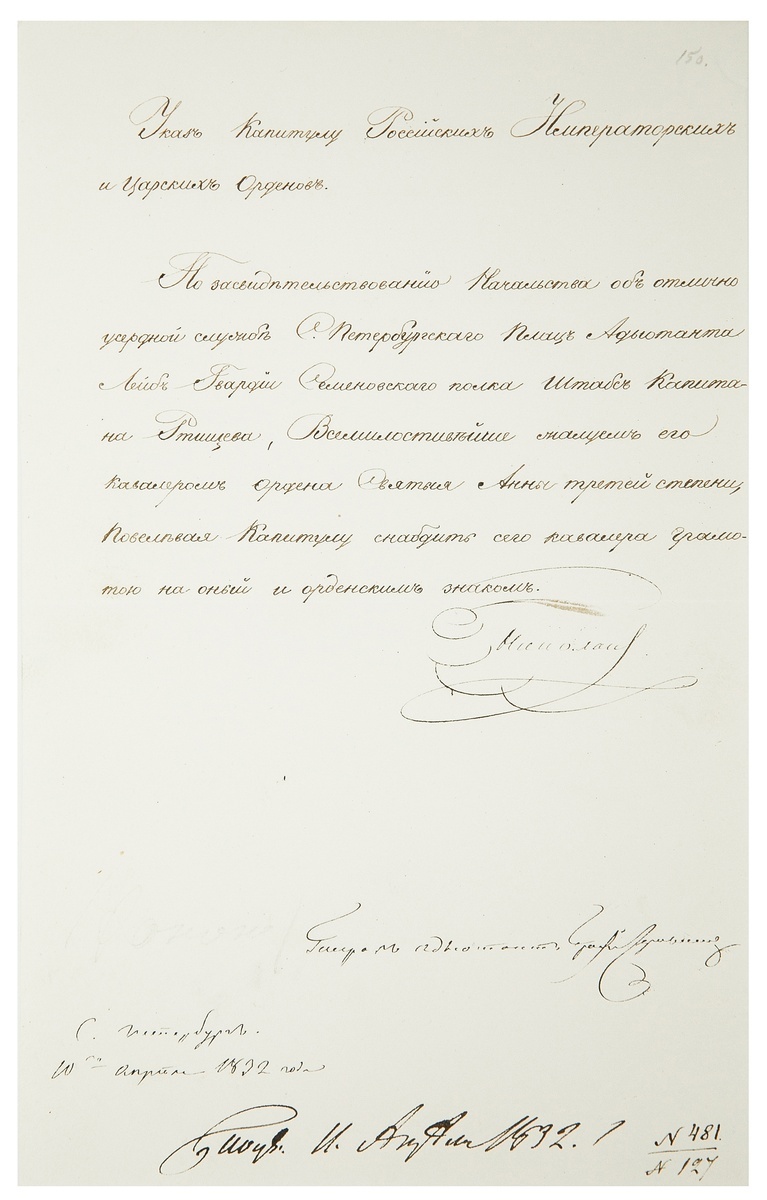 150.
Указъ Капитулу Россійскихъ Императорскихъ
и Царскихъ Орденовъ.
По засвидѣтельствованію Начальства объ отлично
усердной службѣ С. Петербургскаго Плацъ Адъютанта
Лейбъ Гвардіи Семеновскаго полка Штабсъ Капита-
на Ртищева, Всемилостивѣйше жалуемъ его
кавалеромъ ордена Святыя Анны третей степени,
повелѣвая Капитулу снабдить сего кавалера грамо-
тою на оный и орденскимъ знакомъ.
Николай
Генералъ адъютантъ Графъ
С. Петербургъ.
10го апреля 1832 года
11. Апреля 1832.
N 481.
N 127